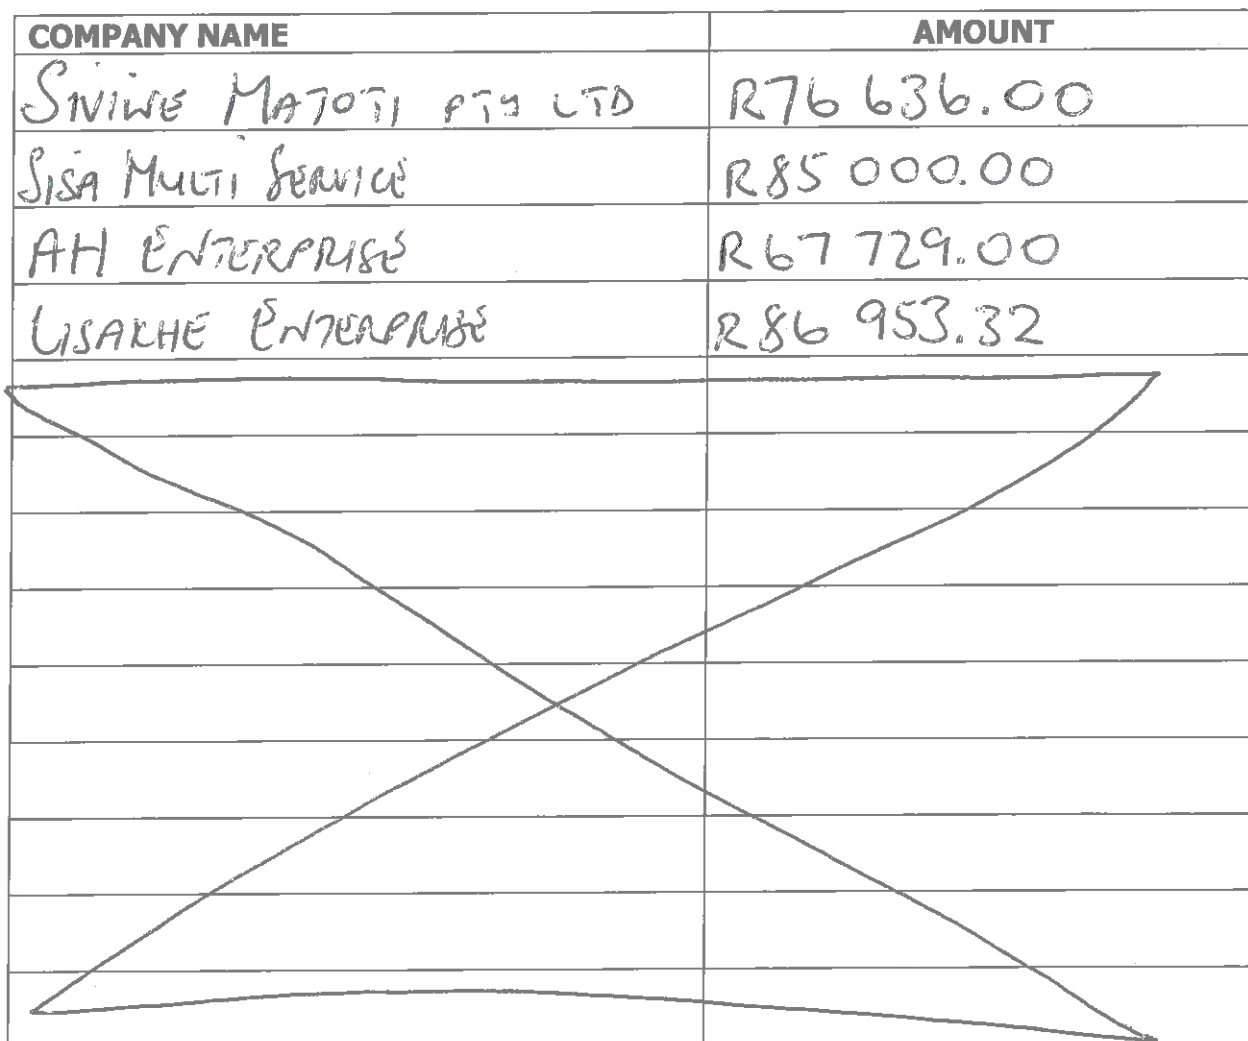 COMPANY NAME AMOUNT
SIVIWE MATOTI PTY LTD R76 636.00
SISA MULTI SERVICE R85 000.00
AH ENTERPRISE R67 729.00
LISAKHE ENTERPRISE R86 953.32